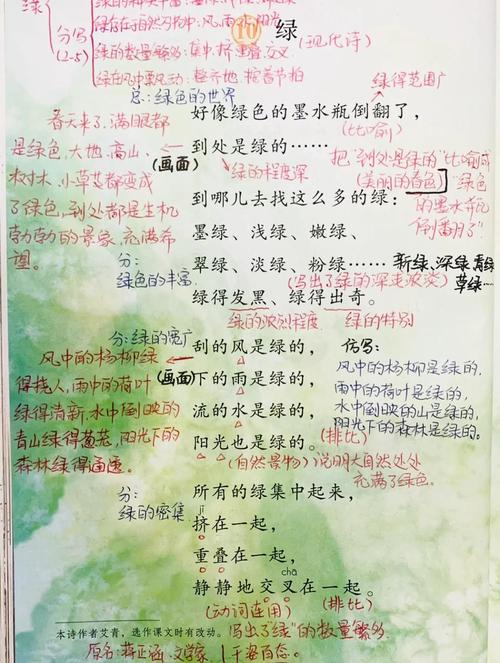 绿
绿存在于自然万物中:风、雨、水、阳光
分写
(2-5)
绿的数量繁多:集中、挤、重叠、交叉
绿在风中飘动:整齐地、按着节拍
10 绿
(现代诗)
总:绿色的世界
绿得范围广
春天来了,满眼都
好像绿色的墨水瓶倒翻了,
(比喻)
是绿色,大地、高山、
到处是绿的……
(画面)
绿的程度深
把"到处是绿的"比喻成
树木,小草芸都变成
(美丽的春色)
"绿色
了绿色,到处都是生机
到哪儿去找这么多的绿:
的墨水瓶
勃勃的景象,充满希
倒翻了"
墨绿、浅绿、嫩绿、
望。
分:
绿色的丰富
翠绿、淡绿、粉绿……
新绿、深绿、青绿
草绿…
(写出了绿的深浅浓淡)
绿得发黑、绿得出奇。
绿的浓烈程度
绿的特别
分:绿的宽广
刮的风是绿的,
仿写:
风中的杨柳绿
风中的杨柳是绿的,
得挠人,雨中的荷叶
(画面)
下的雨是绿的,
雨中的荷叶是绿的,
绿得清新,水中倒映的
流的水是绿的,
水中倒映的山是绿的,
青山绿得葱茏,阳光下的
阳光也是绿的。
(排比)
阳光下的森林是绿的。
森林绿得通透。
(自然景物)
说明大自然处处
充满了绿色。
分:
绿的密集
所有的绿集中起来,
jǐ
挤在一起,
重叠在一起,
chā
静静地交叉在一起。
(动词连用)
(排比)
本诗作者艾青,选作课文时有改动。
写出了"绿"的数量繁多
原名:蒋正涵,文学家
千姿百态。